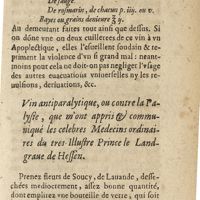 De sauge.
De rosmarin, de chacun p. iiij. ou v.
Bayes ou grains de nieure ℥ ij.
Au demeurant faites tout ainsi que dessus. Si
on donne vne on deux cuillerées de ce vin à vn
Apoplectique, elles l'esueillent soudain & re-
priment la violence d'vn si grand mal : neant-
moins pour cela ne doit-on pas negliger l'vsage
des autres euacuations vniuerselles ny les re-
uulsions, deriuations, &c.
Vin antiparalytique, ou contre la Pa-
lysie, que m'ont appris & commu-
niqué les celebres Medecins ordinai-
res du tres-Illustre Prince le Land-
graue de Hessen.
Prenez fleurs de Soucy, de Lauande, des-
sechées mediocrement, assez bonne quantité,
dont emplirez vne bouteille de verre, qui soit